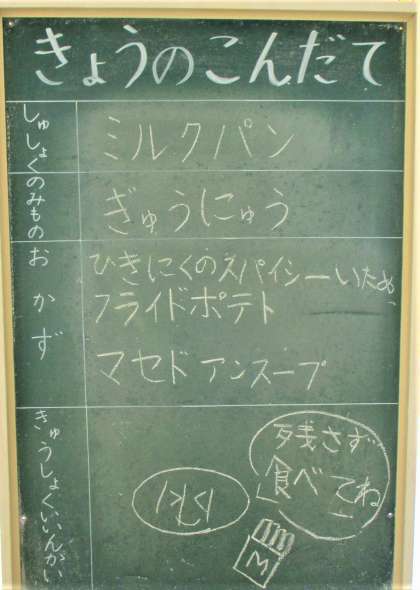 きょうのこんだて
しゅしょく
ミルクパン
のみもの
ぎゅうにゅう
おかず
ひきにくのスパイシーいため
フライドポテト
マセドアンスープ
きゅうしょくいいんかい
残さず
食べてね
M